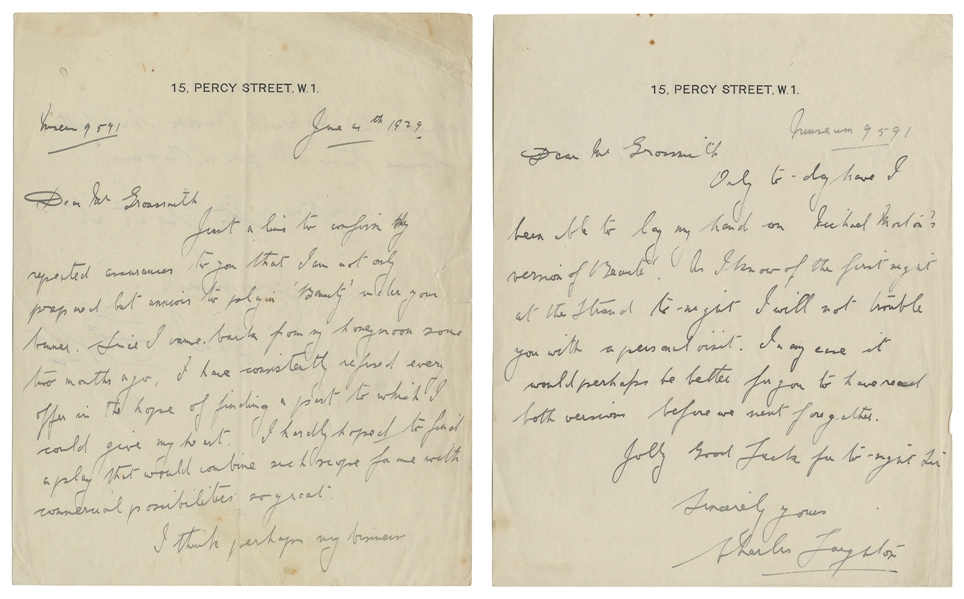 15, PERCY STREET, W.1.
Museum 9591
June 4th 1929
Dear Mr Grossmith
Just a line to confirm my
repeated assurances to you that I am not only
prepared but anxious to play in 'Beauty' under your
banner. Since I came back from my honeymoon some
two months ago, I have consistently refused every
offer in the hope of finding a part to which I
could give my heart. I hardly hoped to find
a play that would combine such scope for me with
commercial possibilities so great.
I think perhaps my business
15, PERCY STREET, W.1.
Museum 9591
Dear Mr Grossmith
Only to-day have I
been able to lay my hand on Michael Morton's
version of 'Beauté'. As I know of the first night
at the Strand to-night I will not trouble
you with a personal visit. In any case it
would perhaps be better for you to have read
both versions before we next foregather.
Jolly Good Luck for to-night Sir
Sincerely yours
Charles Laughton